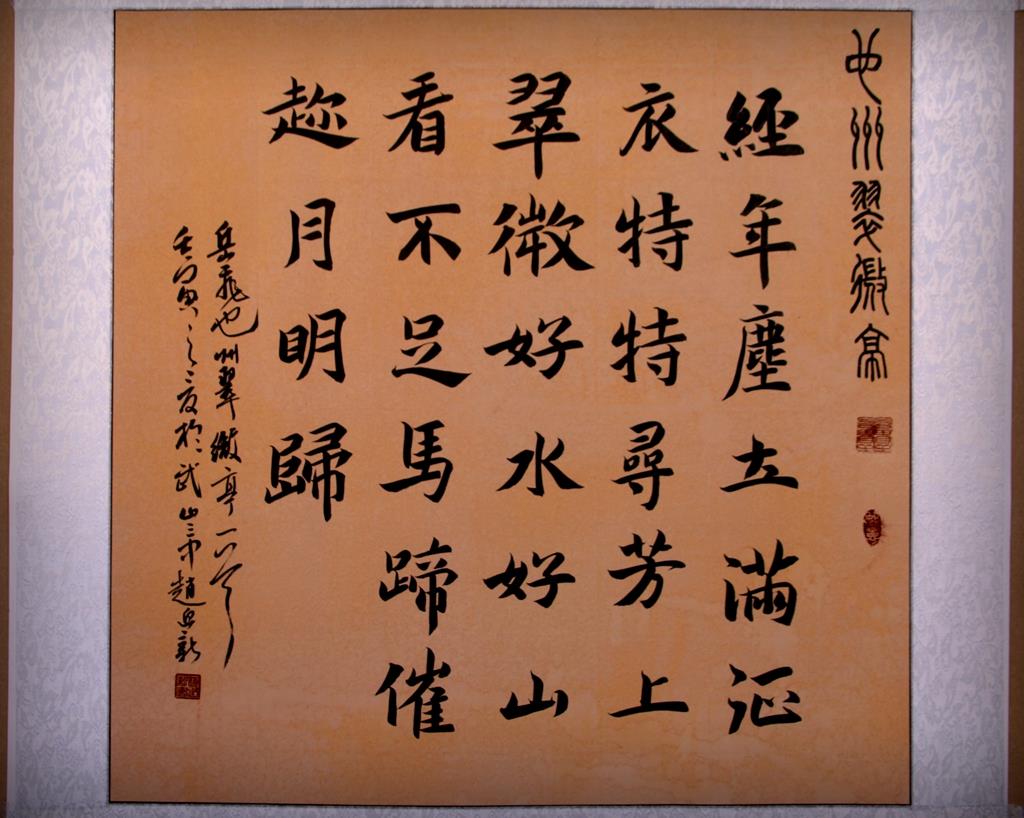 池州翠微亭
經年塵土滿征
衣特特尋芳上
翠微好水好山
看不足馬蹄催
趂月明歸
岳飛池州翠微亭一首
壬寅之夏於武山